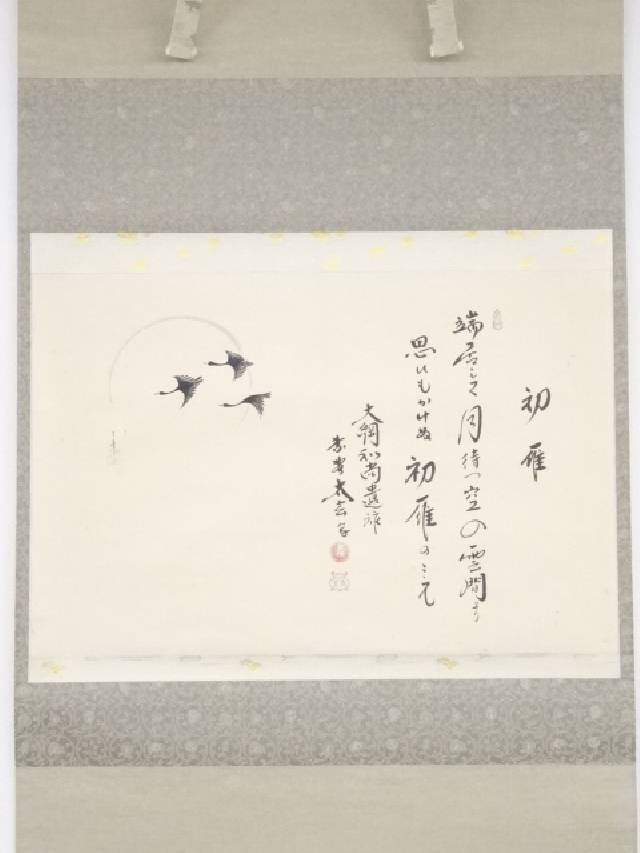 初雁
端居して月待つ空の雲間より
思ひもかけぬ初雁のこゑ
大綱和尚遺詠